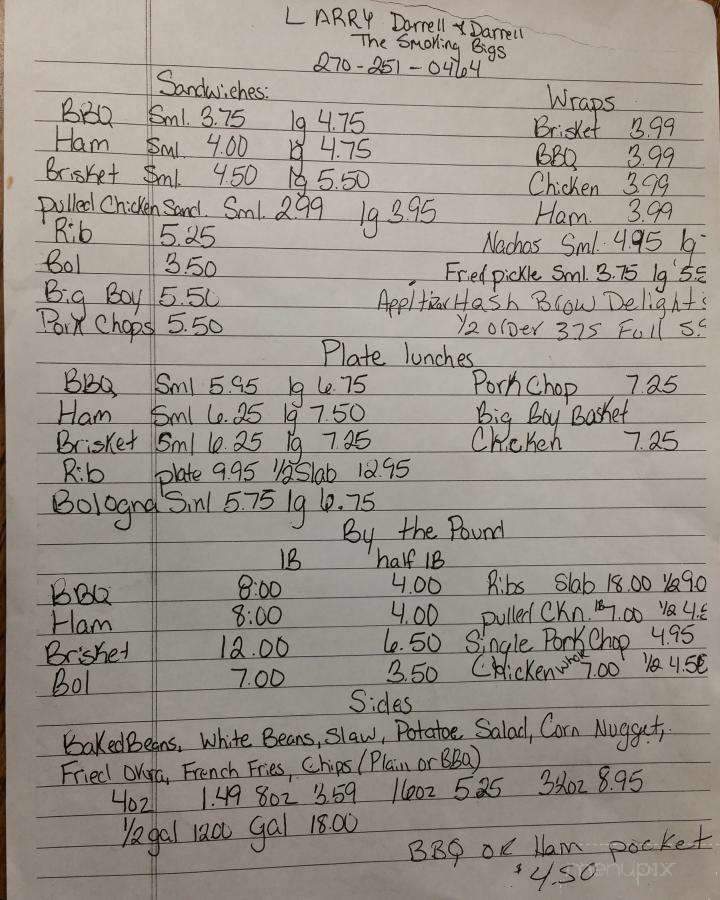 LARRY Darrell & Darrell
The Smoking Bigs
270-251-0464
Sandwiches:
BBQ Sml. 3.75 lg 4.75
Ham Sml. 4.00 lg 4.75
Brisket Sml. 4.50 lg 5.50
pulled Chicken Sand. Sml. 2.99 lg 3.95
Rib 5.25
Bol 3.50
Big Boy 5.50
Pork Chops 5.50
Wraps
Brisket 3.99
BBQ 3.99
Chicken 3.99
Ham. 3.99
Nachos Sml. 4.95 lg
Fried pickle Sml. 3.75 lg
Appitizar Hash Brow Delights
1/2 order 3.75 Full
Plate lunches
BBQ Sml 5.95 lg 6.75
Ham Sml 6.25 lg 7.50
Brisket Sml 6.25 lg 7.25
Rib plate 9.95 1/2 Slab 12.95
Bologna Sml 5.75 lg 6.75
Pork Chop 7.25
Big Boy Basket
Chicken 7.25
By the Pound
lB half lB
BBQ 8:00 4.00
Ham 8:00 4.00
Brisket 12.00 6.50
Bol 7.00 3.50
Ribs Slab 18.00 1/2 9.0
pulled Ckn. lB 7.00 1/2
Single Pork Chop 4.95
Chicken whole 7.00 1/2
Sides
Baked Beans, White Beans, Slaw, Potatoe Salad, Corn Nugget,
Fried Okra, French Fries, Chips (Plain or BBQ)
4oz 1.49 8oz 3.59 16oz 5.25 32oz 8.95
1/2 gal 12.00 Gal 18.00
BBQ OR Ham pocket
$4.50
menupix